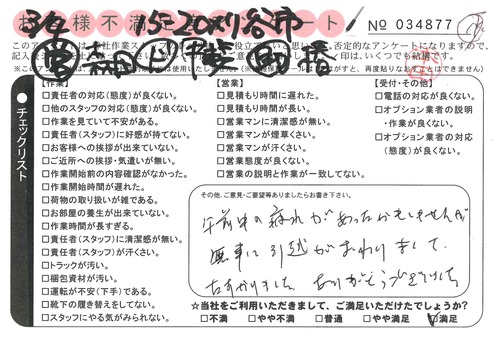 お客様不満足アンケート
№ 034877
3/4 15-20刈谷市
チェックリスト
【作業】
□責任者の対応(態度)が良くない。
□他のスタッフの対応(態度)が良くない。
□作業を見ていて不安がある。
□責任者(スタッフ)に好感が持てない。
□お客様への挨拶が出来ていない。
□ご近所への挨拶・気遣いが無い。
□作業開始前の内容確認がなかった。
□作業開始時間が遅れた。
□荷物の取り扱いが雑である。
□お部屋の養生が出来ていない。
□作業時間が長すぎる。
□責任者(スタッフ)に清潔感が無い。
□責任者(スタッフ)が汗くさい。
□トラックが汚い。
□梱包資材が汚い。
□運転が不安(下手)である。
□靴下の履き替えをしてない。
□スタッフにやる気がみられない。
【営業】
□見積もり時間に遅れた。
□見積もり時間が長い。
□営業マンに清潔感が無い。
□営業マンが煙草くさい。
□営業マンが汗くさい。
□営業態度が良くない。
□営業の説明と作業が一致してない。
【受付・その他】
□電話の対応が良くない。
□オプション業者の説明
・作業が良くない。
□オプション業者の対応
(態度)が良くない。
その他、ご意見・ご要望等ありましたらお書き下さい。
午前中の疲れがあったかもしれませんが
無事に引越がおわりまして、
たすかりました ありがとうございました
☆当社をご利用いただきまして、ご満足いただけたでしょうか?
□不満 □やや不満 □普通 □やや満足 □満足